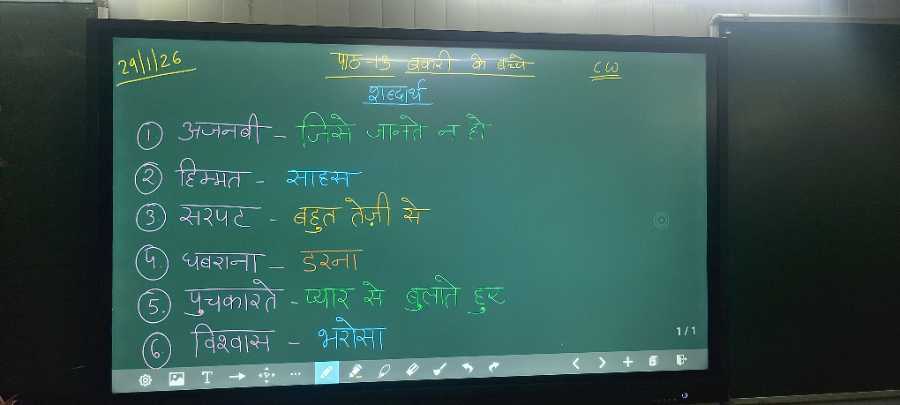 29/1/26 पाठ-19 बकरी के बच्चे CW
शब्दार्थ
① अजनबी - जिसे जानते न हो
② हिम्मत - साहस
③ सरपट - बहुत तेज़ी से
④. घबराना - डरना
⑤. पुचकारते - प्यार से बुलाते हुए
⑥. विश्वास - भरोसा
1/1